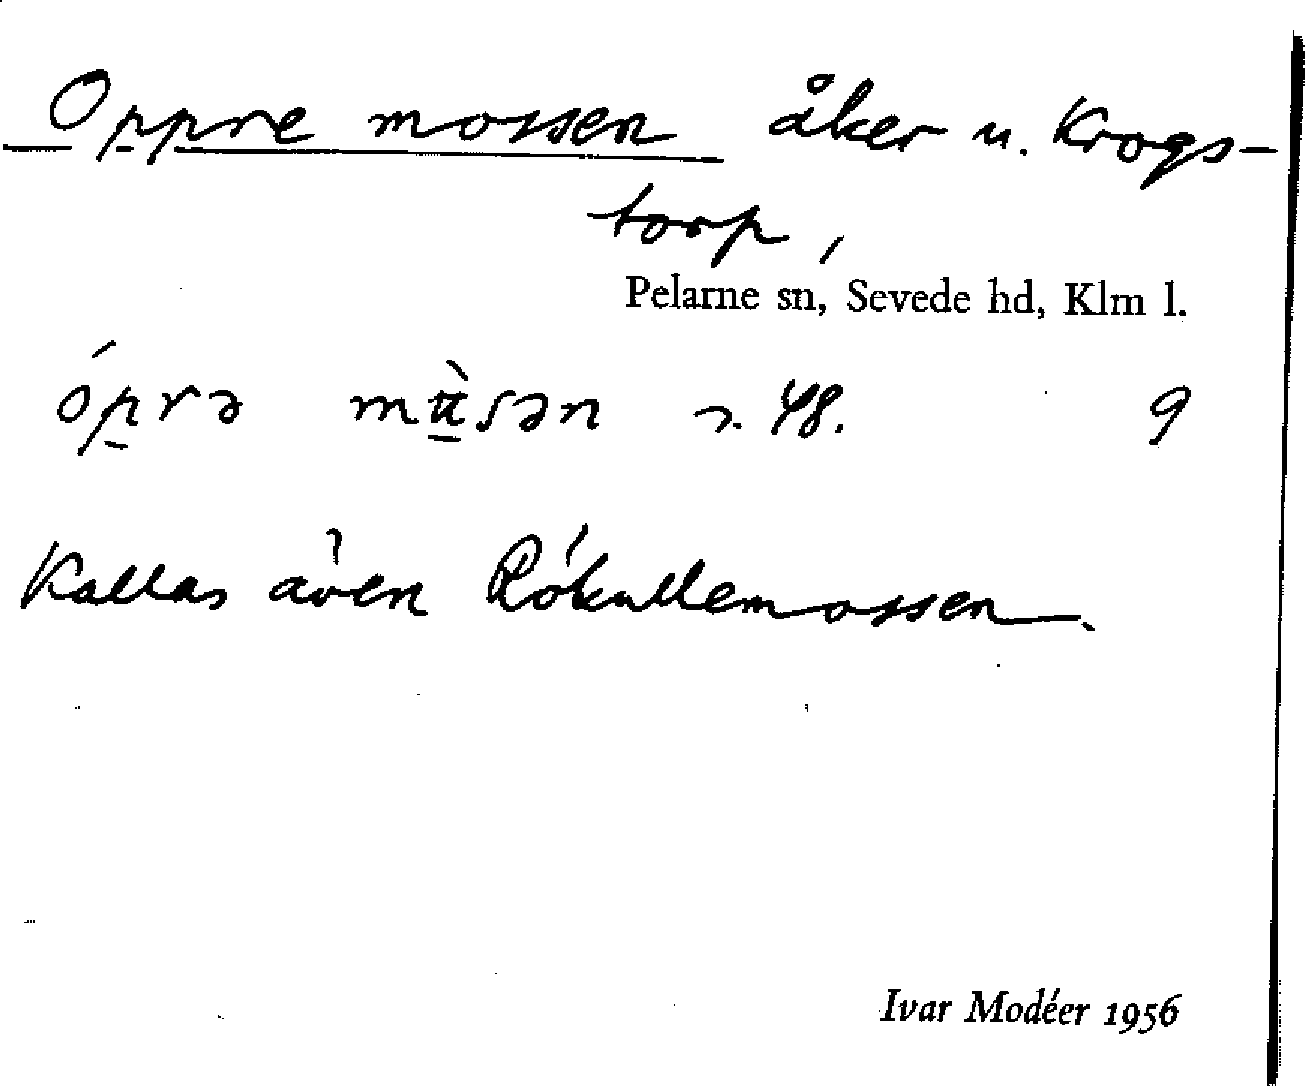 Oppre mossen åker u. Krogs-
torp,
Pelarne sn, Sevede hd, Klm l.
óprə mùsən 48. 9
Kallas även Rökullemossen.
Ivar Modéer 1956